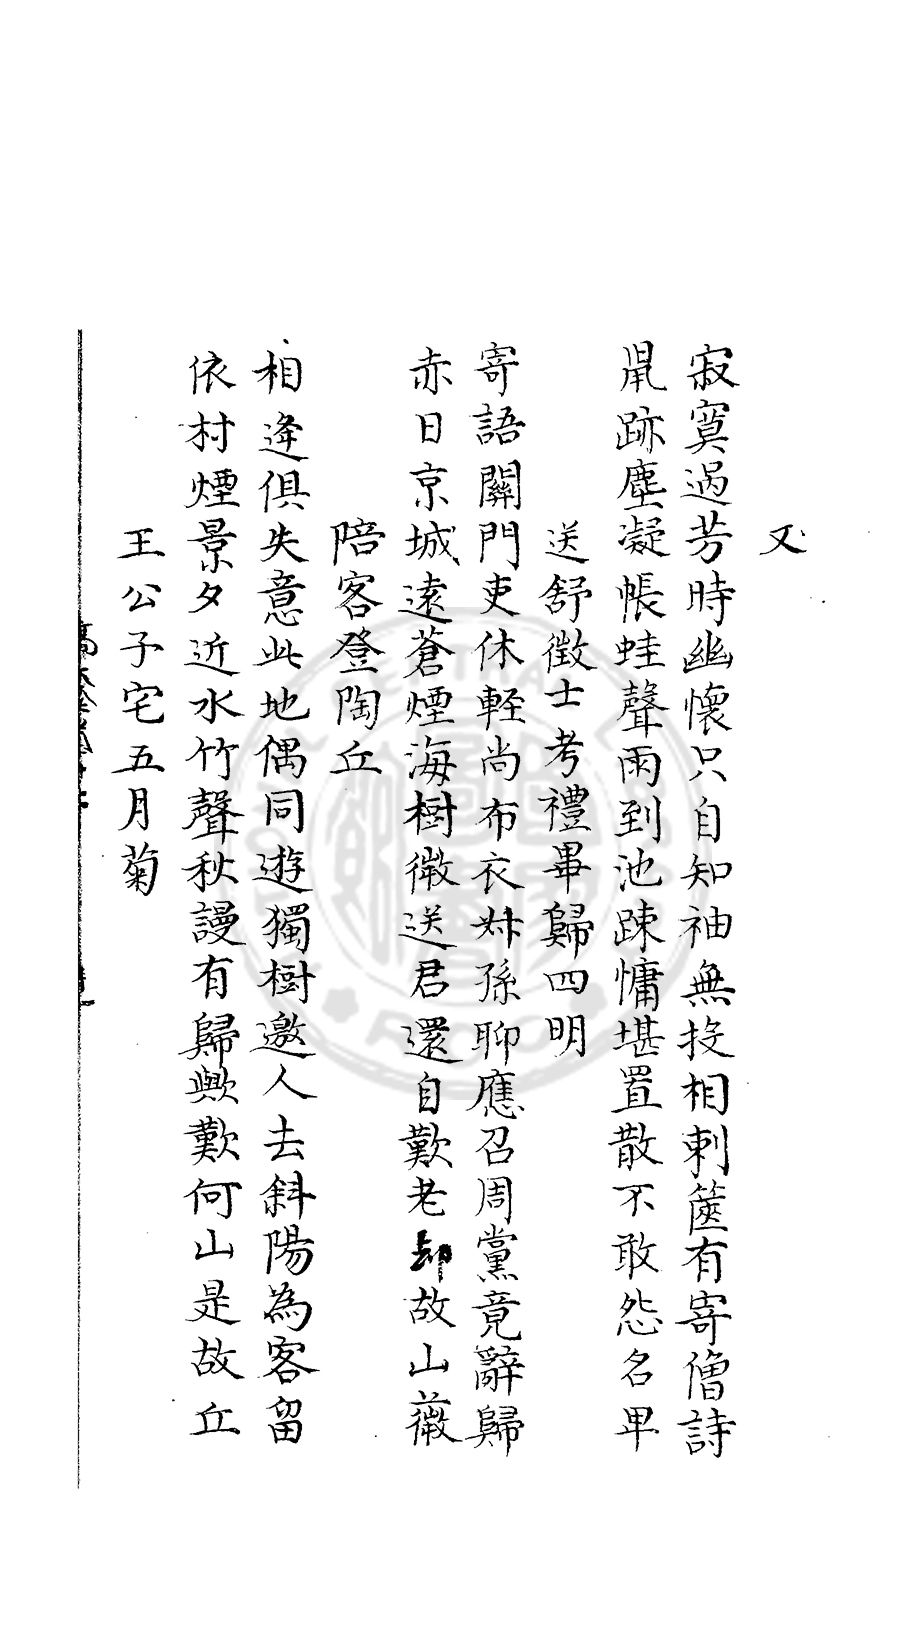 又
寂寞過芳時幽懷只自知袖無投相刺篋有寄僧詩
鼠跡塵凝帳蛙聲雨到池踈慵堪置散不敢怨名卑
送舒徵士考禮畢歸四明
寄語關門吏休輕尚布衣叔孫聊應召周黨竟辭歸
赤日京城遠蒼煙海樹微送君還自歎老卻故山薇
陪客登陶丘
相逢俱失意此地偶同遊獨樹邀人去斜陽為客留
依村煙景夕近水竹聲秋謾有歸歟歎何山是故丘
王公子宅五月菊